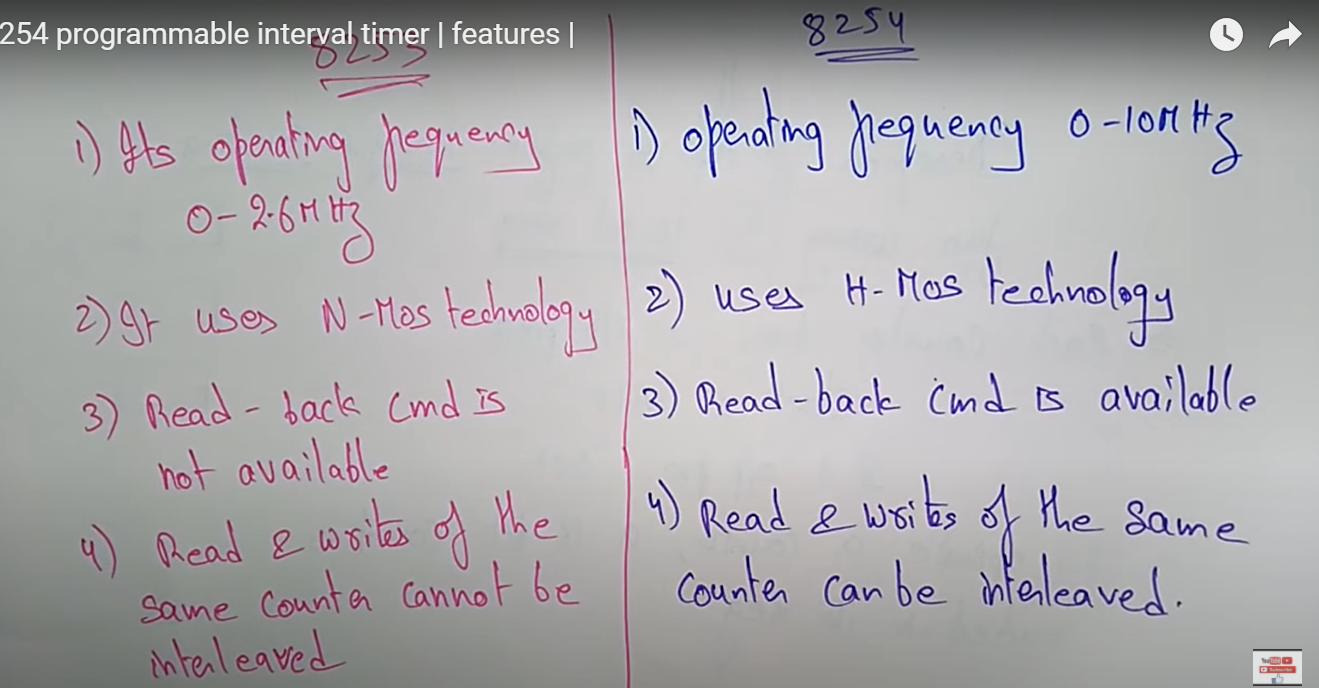 254 programmable interval timer | features |
8253
1) Its operating frequency
0-2.6MHz
2) It uses N-Mos technology
3) Read-back Cmd is
not available
4) Read & writes of the
same counter cannot be
interleaved
8254
1) operating frequency 0-10MHz
2) uses H-Mos technology
3) Read-back Cmd is available
4) Read & writes of the same
Counter can be interleaved.
YouTube
Subscribe